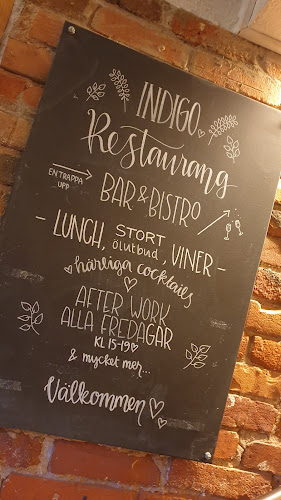 INDIGO
Restaurang
EN TRAPPA
UPP
BAR & BISTRO
- LUNCH, STORT ölutbud, VINER -
härliga cocktails
AFTER WORK
ALLA FREDAGAR
KL 15-19
& mycket mer...
Välkommen